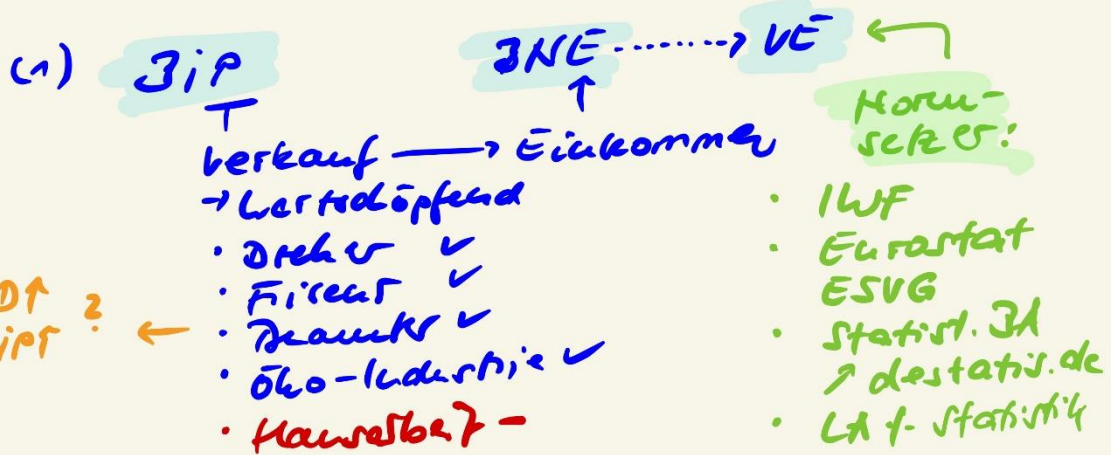 (1) BiP BNE ⋯→ VE
Verkauf → Einkommen
→ Wertschöpfend
· Dreher ✓
· Friseur ✓
· Beamter ✓
· Öko-Industrie ✓
· Hausarbeit -
Norm-
setzer:
· IWF
· Eurostat
ESVG
· Statist. BA
↗ destatis.de
· LA f. Statistik